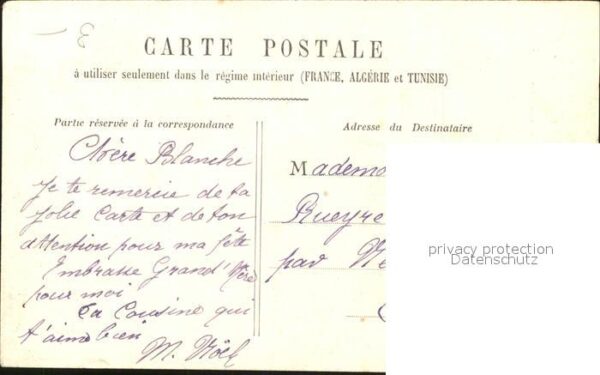 CARTE POSTALE
à utiliser seulement dans le régime intérieur (FRANCE, ALGÉRIE et TUNISIE)
Partie réservée à la correspondance
Chère Blanche
Je te remercie de ta
jolie Carte et de ton
attention pour ma fête
Embrasse Grand' Mère
pour moi
Ta Cousine qui
t'aime bien
M. Noël
Adresse du Destinataire
Mademo
Rueyre
par
privacy protection
Datenschutz